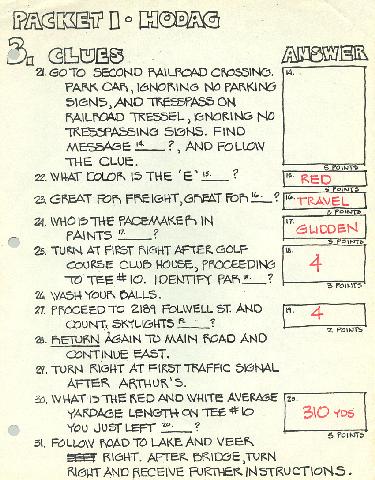 PACKET I · HODAG
3. CLUES ANSWER
21. GO TO SECOND RAILROAD CROSSING. 14.
PARK CAR, IGNORING NO PARKING
SIGNS, AND TRESSPASS ON
RAILROAD TRESSEL, IGNORING NO
TRESSPASSING SIGNS. FIND
MESSAGE 14. ?, AND FOLLOW
THE CLUE. 5 POINTS
22. WHAT COLOR IS THE 'E' 15. ? 15. RED
5 POINTS
23. GREAT FOR FREIGHT, GREAT FOR 16. ? 16. TRAVEL
24. WHO IS THE PACEMAKER IN 17. GLIDDEN
PAINTS 17. ? 5 POINTS
25. TURN AT FIRST RIGHT AFTER GOLF 18. 4
COURSE CLUB HOUSE, PROCEEDING
TO TEE #10. IDENTIFY PAR 18. ?
3 POINTS
26. WASH YOUR BALLS.
27. PROCEED TO 2189 FOLWELL ST. AND 19. 4
COUNT SKYLIGHTS 19. ?
2 POINTS
28. RETURN AGAIN TO MAIN ROAD AND
CONTINUE EAST.
29. TURN RIGHT AT FIRST TRAFFIC SIGNAL
AFTER ARTHUR'S.
30. WHAT IS THE RED AND WHITE AVERAGE 20. 310 YDS
YARDAGE LENGTH ON TEE #10
YOU JUST LEFT 20. ?
5 POINTS
31. FOLLOW ROAD TO LAKE AND VEER
RIGHT. AFTER BRIDGE, TURN
RIGHT AND RECEIVE FURTHER INSTRUCTIONS.